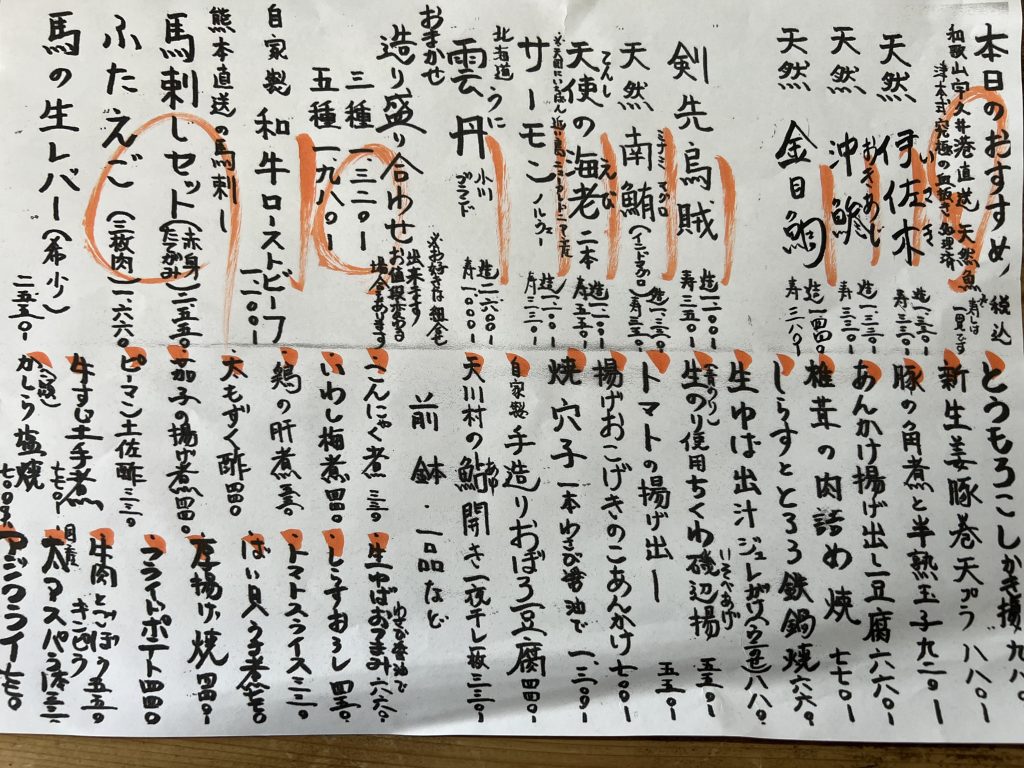 本日のおすすめ 税込
和歌山宇久井港直送 天然魚
津本式究極の血抜き処理済 寿しは一貫です
天然 伊佐木 いさき 造一、三二〇 寿三三〇
天然 沖鯵 おきあじ 造一、三二〇 寿三三〇
天然 金目鯛 造一、四四〇 寿三八〇
剣先烏賊 造一、二〇〇 寿三五〇
天然 南鮪 ミナミマグロ (インド本マグロ)
天使の海老 二本 てんし えび 造一、二〇〇 寿五五〇
サーモン ノルウェー 造一、二一〇 寿三三〇
北海道 うに
雲丹 小川ブランド 造二、六〇〇 寿一、〇〇〇
おまかせ
造り盛り合わせ
三種 一、三二〇ー
五種 一、九八〇ー
自家製 和牛ローストビーフ 一、二〇〇ー
熊本直送の馬刺し
馬刺しセット(赤身)(たてがみ) 二、五五〇ー
ふたえご(三枚肉) 一、六六〇
馬の生レバー(希少) 二、五五〇ー
とうもろこしかき揚 九八〇
新生姜豚巻天プラ 八八〇ー
豚の角煮と半熟玉子 九二〇ー
あんかけ揚げ出し豆腐 六六〇ー
椎茸の肉詰め焼 七七〇ー
しらすととろろ鉄鍋焼 六六〇
生ゆば出汁ジュレがけ
(青のり)
生のり使用ちくわ磯辺揚 いそべあげ 五五〇ー
トマトの揚げ出し 五五〇ー
揚げおこげきのこあんかけ 七〇〇ー
焼穴子一本わさび醤油で 一、三〇〇ー
自家製 手造りおぼろ豆腐 四四〇ー
天川村の鮎開き一夜干し あゆ 一枚 三三〇ー
前鉢・一品など
こんにゃく煮 三三〇
いわし梅煮 四四〇
鶏の肝煮
太もずく酢 四四〇
茄子の揚げ煮 四四〇
ピーマン土佐酢 三三〇
牛すじ土手煮 七七〇ー
かしら塩焼 七〇〇
生ゆばおつまみ わさび醤油で 六六〇
しらすおろし 四五〇
トマトスライス 三三〇
ばい貝うま煮
厚揚げ焼 四四〇
フライドポテト 四四〇
牛肉とごぼうきんぴら 五五〇
国産
アジフライ 七七〇